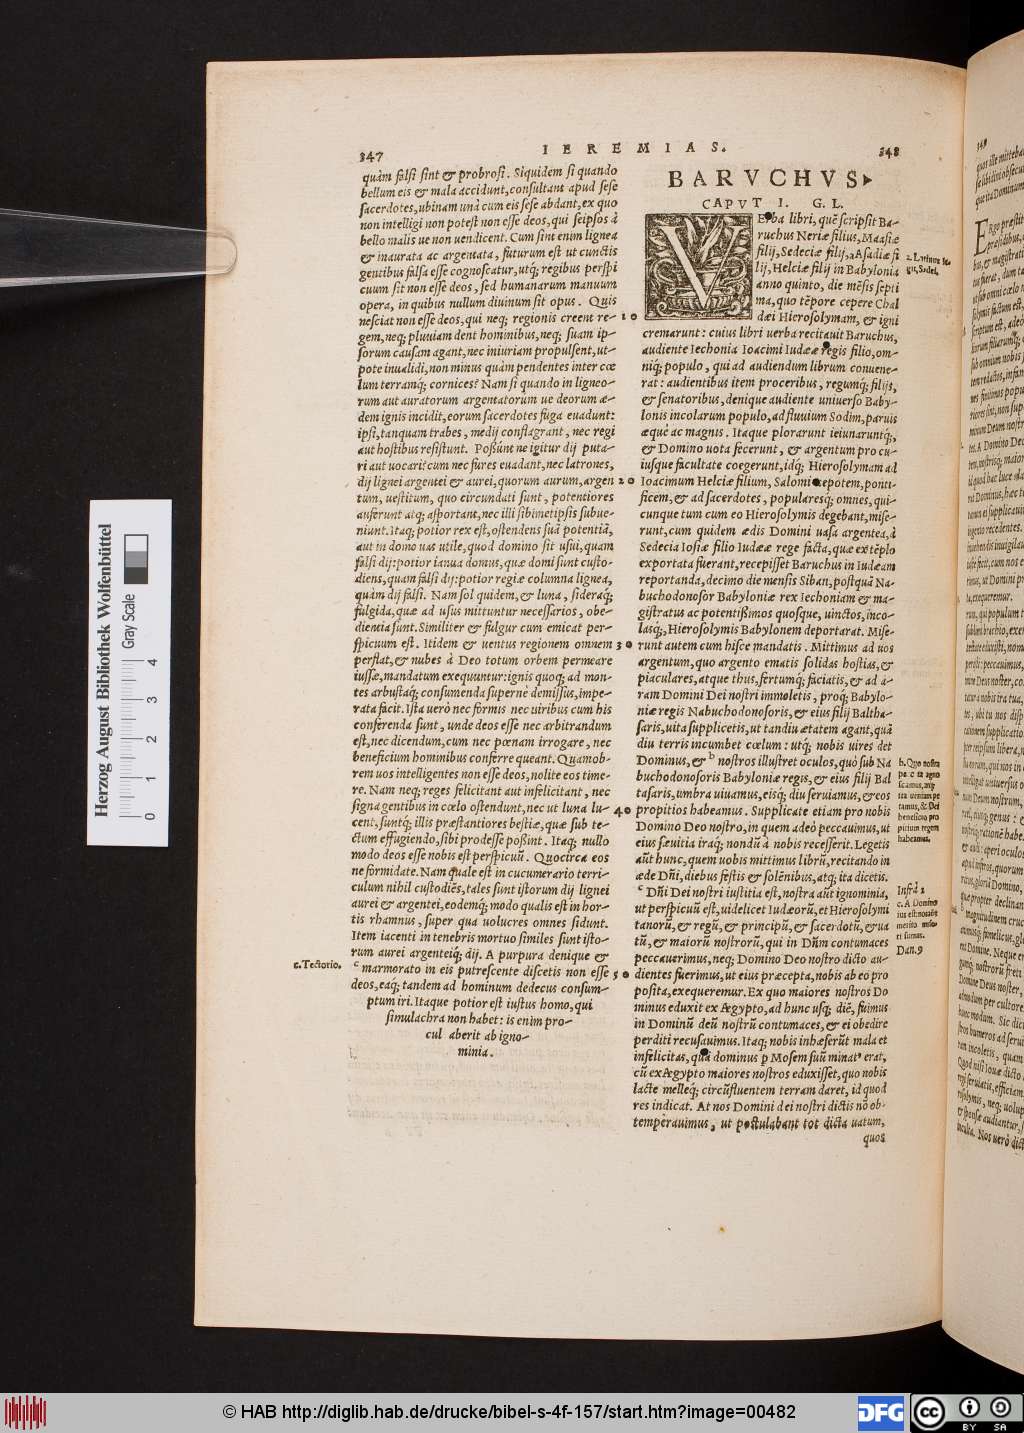 347
IEREMIAS.
348
quàm falsi sint & probrosi. Siquidem si quando
bellum eis & mala accidunt, consultant apud sese
sacerdotes, ubinam unà cum eis sese abdant, ex quo
non intelligi non potest non esse deos, qui seipsos à
bello malis ue non uendicent. Cum sint enim lignea
& inaurata ac argentata, futurum est ut cunctis
gentibus falsa esse cognoscatur, utq; regibus perspi
cuum sit non esse deos, sed humanarum manuum
opera, in quibus nullum diuinum sit opus. Quis
nesciat non esse deos, qui neq; regionis creent re-
gem, neq; pluuiam dent hominibus, neq; suam ip-
sorum causam agant, nec iniuriam propulsent, ut-
pote inualidi, non minus quàm pendentes inter cœ
lum terramq; cornices? Nam si quando in ligneo-
rum aut auratorum argentatorum ue deorum æ-
dem ignis incidit, eorum sacerdotes fuga euadunt:
ipsi, tanquam trabes, medij conflagrant, nec regi
aut hostibus resistunt. Possunt ne igitur dij puta-
ri aut uocari? cum nec fures euadant, nec latrones,
dij lignei argentei & aurei, quorum aurum, argen
tum, uestitum, quo circundati sunt, potentiores
auferunt atq; asportant, nec illi sibimetipsis subue-
niunt. Itaq; potior rex est, ostendens suã potentiã,
aut in domo uas utile, quod domino sit usui, quam
falsi dij: potior ianua domus, quæ domi sunt custo-
diens, quam falsi dij: potior regiæ columna lignea,
quàm dij falsi. Nam sol quidem, & luna, sideraq;
fulgida, quæ ad usus mittuntur necessarios, obe-
dientia sunt. Similiter & fulgur cum emicat per-
spicuum est. Itidem & uentus regionem omnem
perflat, & nubes à Deo totum orbem permeare
iussæ, mandatum exequuntur: ignis quoq; ad mon-
tes arbustaq; consumenda supernè demissus, impe-
rata facit. Ista uerò nec formis nec uiribus cum his
conferenda sunt, unde deos esse nec arbitrandum
est, nec dicendum, cum nec pœnam irrogare, nec
beneficium hominibus conferre queant. Quamob-
rem uos intelligentes non esse deos, nolite eos time-
re. Nam neq; reges felicitant aut infelicitant, nec
signa gentibus in cœlo ostendunt, nec ut luna lu-
cent, suntq; illis præstantiores bestiæ, quæ sub te-
ctum effugiendo, sibi prodesse possint. Itaq; nullo
modo deos esse nobis est perspicuũ. Quocirca eos
ne formidate. Nam quale est in cucumerario terri-
culum nihil custodiẽs, tales sunt istorum dij lignei
aurei & argentei, eodemq; modo qualis est in hor-
tis rhamnus, super qua uolucres omnes sidunt.
Item iacenti in tenebris mortuo similes sunt isto-
rum aurei argenteiq; dij. A purpura denique &
c marmorato in eis putrescente discetis non esse
deos, eaq; tandem ad hominum dedecus consum-
ptum iri. Itaque potior est iustus homo, qui
simulachra non habet: is enim pro-
cul aberit ab igno-
minia.
c. Tectorio.
10
20
30
40
50
BARVCHVS
CAPVT I. G. L.
VErba libri, quẽ scripsit Ba-
ruchus Neriæ filius, Maasiæ
filij, Sedeciæ filij, a Asadiæ fi
lij, Helciæ filij in Babylonia
anno quinto, die mẽsis septi
ma, quo tẽpore cepere Chal
dæi Hierosolymam, & igni
cremarunt: cuius libri uerba recitauit Baruchus,
audiente Iechonia Ioacimi Iudææ regis filio, om-
niq; populo, qui ad audiendum librum conuene-
rat: audientibus item proceribus, regumq; filijs,
& senatoribus, denique audiente uniuerso Baby-
lonis incolarum populo, ad fluuium Sodim, paruis
æquè ac magnis. Itaque plorarunt ieiunaruntq;,
& Domino uota fecerunt, & argentum pro cu-
iusque facultate coegerunt, idq; Hierosolymam ad
Ioacimum Helciæ filium, Salomi nepotem, ponti-
ficem, & ad sacerdotes, popularesq; omnes, qui-
cunque tum cum eo Hierosolymis degebant, mise-
runt, cum quidem ædis Domini uasa argentea, à
Sedecia Iosiæ filio Iudææ rege facta, quæ ex tẽplo
exportata fuerant, recepisset Baruchus in Iudæam
reportanda, decimo die mensis Siban, postquã Na-
buchodonosor Babyloniæ rex Iechoniam & ma-
gistratus ac potentissimos quosque, uinctos, inco-
lasq;, Hierosolymis Babylonem deportarat. Mise-
runt autem cum hisce mandatis. Mittimus ad uos
argentum, quo argento ematis solidas hostias, &
piaculares, atque thus, fertumq; faciatis, & ad a-
ram Domini Dei nostri immoletis, proq; Babylo-
niæ regis Nabuchodonosoris, & eius filij Baltha-
saris, uita supplicetis, ut tandiu ætatem agant, quã
diu terris incumbet cœlum: utq; nobis uires det
Dominus, & b nostros illustret oculos, quò sub Na
buchodonosoris Babyloniæ regis, & eius filij Bal
tasaris, umbra uiuamus, eisq; diu seruiamus, & eos
propitios habeamus. Supplicate etiam pro nobis
Domino Deo nostro, in quem adeò peccauimus, ut
eius sæuitia iraq; nondũ à nobis recesserit. Legetis
aũt hunc, quem uobis mittimus librũ, recitando in
æde Dñi, diebus festis & solẽnibus, atq; ita dicetis.
c Dñi Dei nostri iustitia est, nostra aũt ignominia,
ut perspicuũ est, uidelicet Iudæorũ, et Hierosolymi
tanorũ, & regũ, & principũ, & sacerdotũ, & ua
tũ, & maiorũ nostrorũ, qui in Dñm contumaces
peccauerimus, neq; Domino Deo nostro dicto au-
dientes fuerimus, ut eius præcepta, nobis ab eo pro
posita, exequeremur. Ex quo maiores nostros Do
minus eduxit ex Ægypto, ad hunc usq; diẽ, fuimus
in Dominũ deũ nostrũ contumaces, & ei obedire
perditi recusauimus. Itaq; nobis inhæserũt mala et
infelicitas, quã dominus p Mosem suũ minat' erat,
cũ ex Ægypto maiores nostros eduxisset, quo nobis
lacte melleq; circũfluentem terram daret, id quod
res indicat. At nos Domini dei nostri dictis nõ ob-
temperauimus, ut postulabant tot dicta uatum,
quos
b. Quo nostra
Infrà 2
c. A Domino
Dan. 9
Herzog August Bibliothek Wolfenbüttel
Gray Scale
0 1 2 3 4
© HAB http://diglib.hab.de/drucke/bibel-s-4f-157/start.htm?image=00482
DFG
cc
BY SA